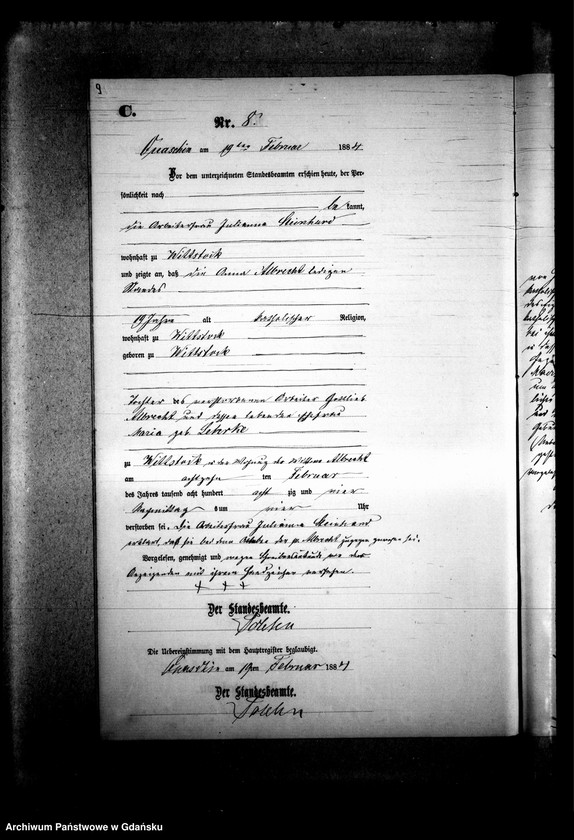 9
C.
Nr. 8.
Quaschin am 19ten Februar 1884.
Vor dem unterzeichneten Standesbeamten erschien heute, der Per-
sönlichkeit nach
bekannt,
die Arbeiterfrau Julianna Steinhard
wohnhaft zu Wittstock
und zeigte an, daß die Anna Albrecht ledigen
Standes
19 Jahre alt katholischer Religion,
wohnhaft zu Wittstock
geboren zu Wittstock
Tochter des verstorbenen Arbeiter Gottlieb
Albrecht und dessen lebenden Ehefrau
Maria geb.
zu Wittstock in der Wohnung der Wittwe Albrecht
am achtzehn ten Februar
des Jahres tausend acht hundert acht zig und vier
Nachmittag s um vier Uhr
verstorben sei. Die Arbeiterfrau Julianna Steinhard
erklärt, daß sie bei dem Tode der p. Albrecht zugegen gewesen sei.
Vorgelesen, genehmigt und wegen Schreibensunkunde von der
Anzeigenden mit ihrem Handzeichen versehen.
+ + +
Der Standesbeamte.
Die Uebereinstimmung mit dem Hauptregister beglaubigt.
Quaschin am 19ten Februar 1884
Der Standesbeamte.
Archiwum Państwowe w Gdańsku